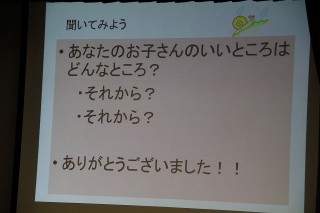 聞いてみよう
・あなたのお子さんのいいところは
どんなところ？
・それから？
・それから？
・ありがとうございました！！